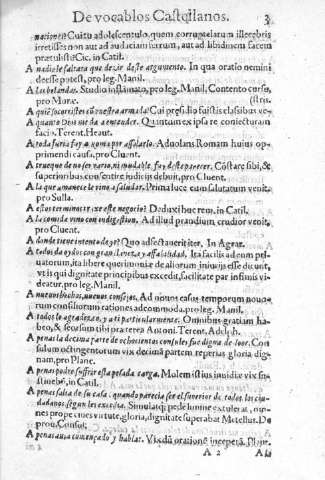 De vocablos Castellanos. 3
nacioness Cui tu adolescentulo, quem corruptelarum illecebris
irretisses non aut ad audaciam ferrum, aut ad libidinem facem
prætulisti Cic. in Catil.
A nadie le faltara que dezir deste argumento. In qua oratio nemini
deesse potest, pro leg. Manil.
A las bolandas. Studio inflamato, pro leg. Manil. Contento cursu,
pro Muræ. (stru.
A quiē socorristes cō vuestra armada? Cui præsidio fuistis classibus ve-
A quanto Dios me da a entender. Quintum ex ipsa re coniecturam
facio. Terent. Heaut.
A toda furia fuy a Roma por assalatlo. Aduolans Romam huius op-
primendi causa, pro Cluent.
A trueque de no ser vario, ni mudable fuy deste parecer. Cōstare sibi, &
superioribus consentire iudicijs debuit, pro Cluent.
A la que amanece le vino a saludar. Prima luce eum salutatum venit,
pro Sulla.
A estos terminos traxe este negocio? Deduxi huc rem, in Catil.
A la comida vino con indigestion. Ad illud prandium crudior venit,
pro Cluent.
A donde tiene intento de yr? Quo adfectauerit iter. In Agrar.
A todos da oydos con gran llaneza, y affabilidad. Ita facilis ad eum pri-
uatorum, ita libere querimoniæ de aliorum iniurijs esse dicunt,
vt is qui dignitate principibus excedit, facilitate par infimis vi-
deatur, pro leg. Manil.
A nueuos hechos, nueuos consejos. Ad nouos casus temporum nouo-
rum consiliorum rationes adcommoda, pro leg. Manil.
A todos lo agradezco, y a ti particularmente. Omnibus gratiam ha-
beo, & seorsum tibi præterea Antoni. Terent. Adelph.
A penas la decima parte de ochocientos consules fue digna de loor. Con-
sulum octingentorum vix decimā partem reperias gloria dig-
nam, pro Planc.
A penas podre suffrir esta pesada carga. Molem istius inuidiæ vix su-
stinebo, in Catil.
A penas salia de su casa, quando parecia ser el superior de todos los ciu-
dadanos, segun les excedia. Simulatq; pede limine extulerat, om-
nes prope ciues virtute, gloria, dignitate superabat Metellus. De
prou. Consul.
A penas auia començado y hablar. Vixdū oratione incepta. Planc.
A 2 A la